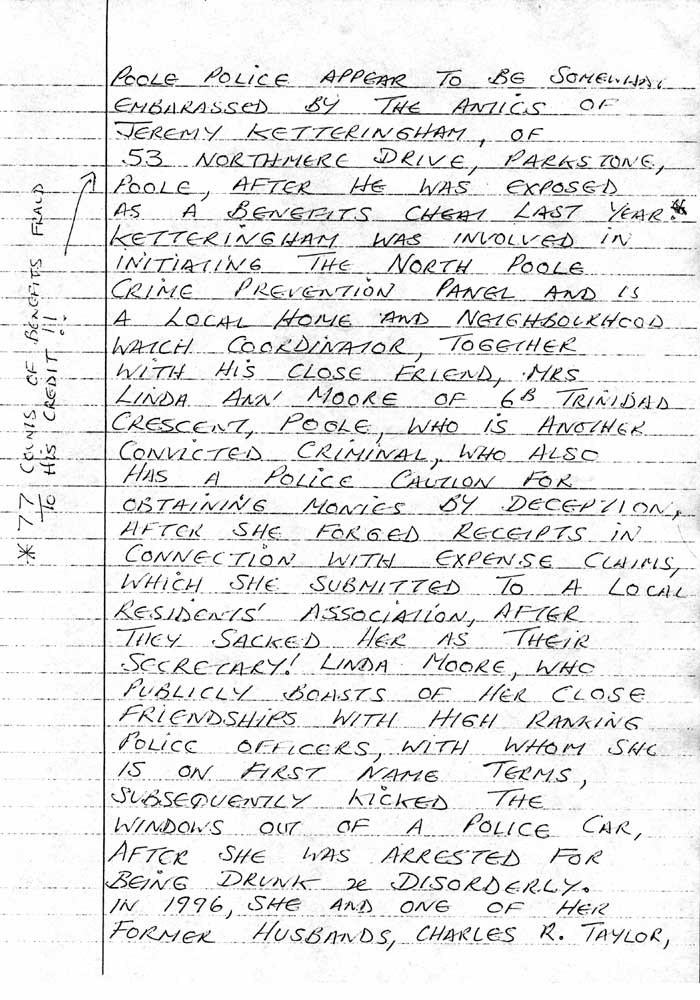 POOLE POLICE APPEAR TO BE SOMEWHAT
EMBARASSED BY THE ANTICS OF
JEREMY KETTERINGHAM, OF
53 NORTHMERE DRIVE, PARKSTONE,
POOLE, AFTER HE WAS EXPOSED
AS A BENEFITS CHEAT LAST YEAR!*
KETTERINGHAM WAS INVOLVED IN
INITIATING THE NORTH POOLE
CRIME PREVENTION PANEL AND IS
A LOCAL HOME AND NEIGHBOURHOOD
WATCH COORDINATOR, TOGETHER
WITH HIS CLOSE FRIEND, MRS
LINDA ANN MOORE OF 6B TRINIDAD
CRESCENT, POOLE, WHO IS ANOTHER
CONVICTED CRIMINAL, WHO ALSO
HAS A POLICE CAUTION FOR
OBTAINING MONIES BY DECEPTION,
AFTER SHE FORGED RECEIPTS IN
CONNECTION WITH EXPENSE CLAIMS,
WHICH SHE SUBMITTED TO A LOCAL
RESIDENTS' ASSOCIATION, AFTER
THEY SACKED HER AS THEIR
SECRETARY! LINDA MOORE, WHO
PUBLICLY BOASTS OF HER CLOSE
FRIENDSHIPS WITH HIGH RANKING
POLICE OFFICERS, WITH WHOM SHE
IS ON FIRST NAME TERMS,
SUBSEQUENTLY KICKED THE
WINDOWS OUT OF A POLICE CAR,
AFTER SHE WAS ARRESTED FOR
BEING DRUNK & DISORDERLY.
IN 1996, SHE AND ONE OF HER
FORMER HUSBANDS, CHARLES R. TAYLOR,
* 77 COUNTS OF BENEFITS FRAUD
TO HIS CREDIT!!